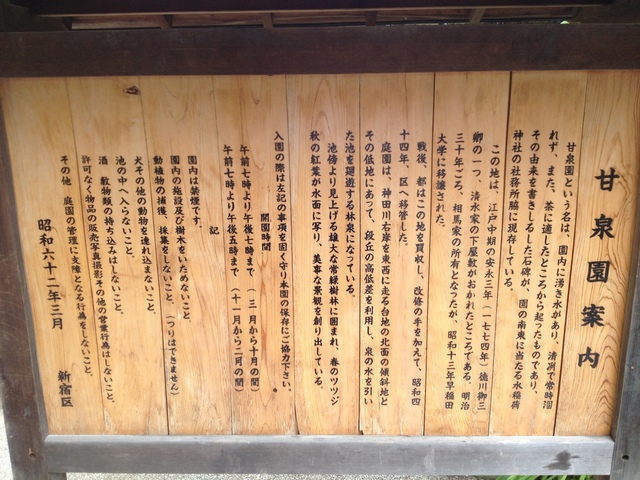 甘泉園案内
甘泉園という名は、園内に湧き水があり、清冽で常時涸
れず、また、茶に適したところから起ったものであり、
その由来を書きしるした石碑が、園の南東に当たる水稲荷
神社の社務所脇に現存している。
この地は、江戸中期の安永三年(一七七四年)徳川御三
卿の一つ、清水家の下屋敷がおかれたところである。明治
三十年ごろ、相馬家の所有となったが、昭和十三年早稲田
大学に移譲された。
戦後、都はこの地を買収し、改修の手を加えて、昭和四
十四年、区へ移管した。
庭園は、神田川右岸を東西に走る台地の北面の傾斜地と
その低地にあって、段丘の高低差を利用し、泉の水を引い
た池を廻遊する林泉になっている。
池傍より見上げる雄大な常緑樹林に囲まれ、春のツツジ
秋の紅葉が水面に写り、美事な景観を創り出している。
入園の際は左記の事項を固く守り本園の保存にご協力下さい。
開園時間
午前七時より午後七時まで(三月から十月の間)
午前七時より午後五時まで(十一月から二月の間)
記
園内は禁煙です。
園内の施設及び樹木をいためないこと。
動植物の捕獲、採集をしないこと。(つりはできません)
犬その他の動物を連れ込まないこと。
池の中へ入らないこと。
酒、敷物類の持ち込みはしないこと。
許可なく物品の販売写真撮影その他の営業行為はしないこと。
その他、庭園の管理に支障となる行為をしないこと。
昭和六十二年三月 新宿区